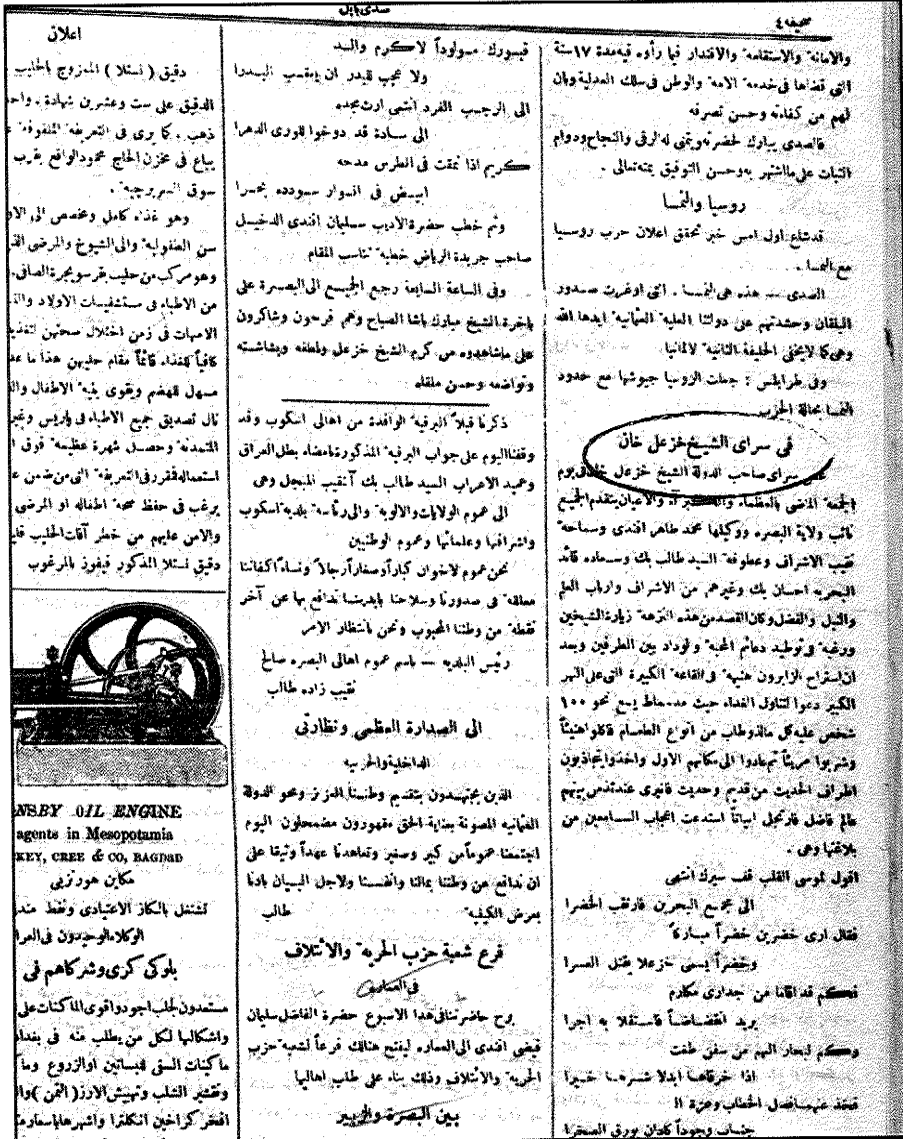 صحيفة ٤
صدى بابل
والامانة والاستقامة والاقتدار فيما رأوه فيه مدة ١٧ سنة
التى قضاها فى خدمة الامة والوطن فى سلك العدلية وبان
لهم من كفاءته وحسن تصرفه
فالصدى يبارك لحضرته ويتمنى له الرقى والنجاح ودوام
الثبات على ما اشتهر به وحسن التوفيق بمنه تعالى .
روسيا والنمسا
قد شاع اول امس خبر تحقق اعلان حرب روسيا
مع النمسا .
الصدى — هذه هى النمسا . التى اوغرت صدور
البلقان وحشدتهم على دولتنا العلية العثمانية ايدها الله
وهى كما لايخفى الحليفة الثانية لالمانيا .
وفى طرابلس : جعلت الروسيا جيوشها مع حدود
النمسا بحالة الحرب
فى سراى الشيخ خزعل خان
سراى صاحب الدولة الشيخ خزعل خان فى يوم
الجمعة الماضى بالعظماء والكبراء والاعيان يتقدم الجميع
نائب ولاية البصره ووكيلها محمد طاهر افندى وسماحة
نقيب الاشراف وعطوفة السيد طالب بك وسعاده قائد
البحريه احسان بك وغيرهم من الاشراف وارباب العلم
والنبل والفضل وكان القصد من هذه النزهة زيارة الشيخين
ورغبة فى توطيد دعائم المحبة والوداد بين الطرفين وبعد
ان استراح الزايرون هنيهة فى القاعة الكبيرة التى على النهر
الكبير دعوا لتناول الغداء حيث مد سماط يسع نحو ١٠٠
شخص عليه كل مالذ وطاب من انواع الطعام فاكلوا هنيئاً
وشربوا مريئاً ثم عادوا الى مكانهم الاول واخذوا يتجاذبون
اطراف الحديث من قديم وحديث فانبرى عندئذ من بينهم
عالم فاضل فارتجل ابياتاً استدعت اعجاب السامعين من
بلاغتها وهى .
اقول لموسى القلب قف سيرك انتهى
الى مجمع البحرين فارتقب الخضرا
فقال ارى خضرين خضراً مباركاً
وخضراً يسمى خزعلا بقتل العسرا
فكم قد اقاما من جدارى مكارم
يريد انقضاضاً فاستقلا به اجرا
وكم لبحار الهم من سفن طغت
اذا خرقاها ابدلا شرها خيرا
فخذ عنهما فصل الخطاب وعزة الـ
جناب وجوداً كادان يورق الصخرا
فيسورك مولوداً لاكرم والـد
ولا عجب للبدر ان يعقب البدرا
الى الرجب الفرد انتهى ارث مجده
الى سادة قد دوخوا للورى الدهرا
كريم اذا نمقت فى الطرس مدحه
ابيض فى انوار سودده بحرا
وثم خطب حضرة الاديب سليمان افندى الدخيل
صاحب جريدة الرياض خطبة تناسب المقام
وفى الساعة السابعة رجع الجميع الى البصرة على
باخرة الشيخ مبارك باشا الصباح وهم فرحون وشاكرون
على ماشاهدوه من كرم الشيخ خزعل ولطفه وبشاشته
وتواضعه وحسن ملقاه
ذكرنا قبلاً البرقية الوافدة من اهالى اسكوب وقد
وقفنا اليوم على جواب البرقية المذكورة بامضاء بطل العراق
وعميد الاعراب السيد طالب بك النقيب المبجل وهى
الى عموم الولايات والالوية والى رئاسة بلدية اسكوب
واشرافها وعلمائها وعموم الوطنيين
نحن عموم الاخوان كباراً وصغاراً رجالاً ونساءً اكفاننا
معلقة فى صدورنا وسلاحنا بايدينا ندافع بها عن آخر
نقطة من وطننا المحبوب ونحن بانتظار الامر
رئيس البلديه — باسم عموم اهالى البصره صالح
نقيب زاده طالب
الى الصدارة العظمى ونظارتى
الداخلية والحربيه
الذين يجتهدون بتقسيم وطننا العزيز ومحو الدولة
العثمانيه المصونة بعناية الحق مقهورون مضمحلون . اليوم
اجتمعنا عموماً من كبير وصغير وتعاهدنا عهداً وثيقا على
ان ندافع عن وطننا بمالنا وانفسنا ولاجل البيان بادنا
بعرض الكيفية طالب
فرع شعبة حزب الحرية والائتلاف
فى العماره
برح حاضرتنا فى هذا الاسبوع حضرة الفاضل سليمان
فيضى افندى الى العماره ليفتح هنالك فرعاً لشعبة حزب
الحرية والائتلاف وذلك بناء على طلب اهاليها
بين البصرة والزبير
اعلان
دقيق ( نستلا ) الممزوج بالحليب
الدقيق على ست وعشرين شهادة . واحد
ذهب . كما يرى فى التعريفة الملفوفة
يباع فى مخزن الحاج محمود الواقع بقرب
سوق
وهو غذاء كامل ومخصص الى الاو
سن الطفولية والى الشيوخ والمرضى
وهو مركب من حليب بقر سويجرة الصافى
من الاطباء فى مستشفيات الاولاد
الامهات فى زمن اختلال صحتهن لتغذي
كافياً للغذاء قائماً مقام حليبهن هذا ما عد
مسهل للهضم ويقوى بنية الاطفال وال
نال تصديق جميع الاطباء فى باريس وغير
المتمدنة وحصل شهرة عظيمة فوق
استعماله فقرر فى التعريفة التى من ضمن
يرغب فى حفظ صحة اطفاله او المرضى
والامن عليهم من خطر آفات الحليب
دقيق نستلا المذكور فيفوز بالمرغوب
NSBY OIL ENGINE
agents in Mesopotamia
KEY, CREE & CO, BAGDAD
مكاين هورنزبى
تشتغل بالكاز الاعتيادى ونفط
الوكلاء الوحيدون فى العرا
بلوكى كرى وشركاهم فى
مستعدون لجلب اجود واقوى الماكنات على
واشكالها لكل من يطلب منه فى بغداد
ماكنات السقى للبساتين او الزروع وما
وتقشير الشلب وتهبيش الارز ( التمن ) وال
افخر كراخين انكلترا واشهرها باسعار